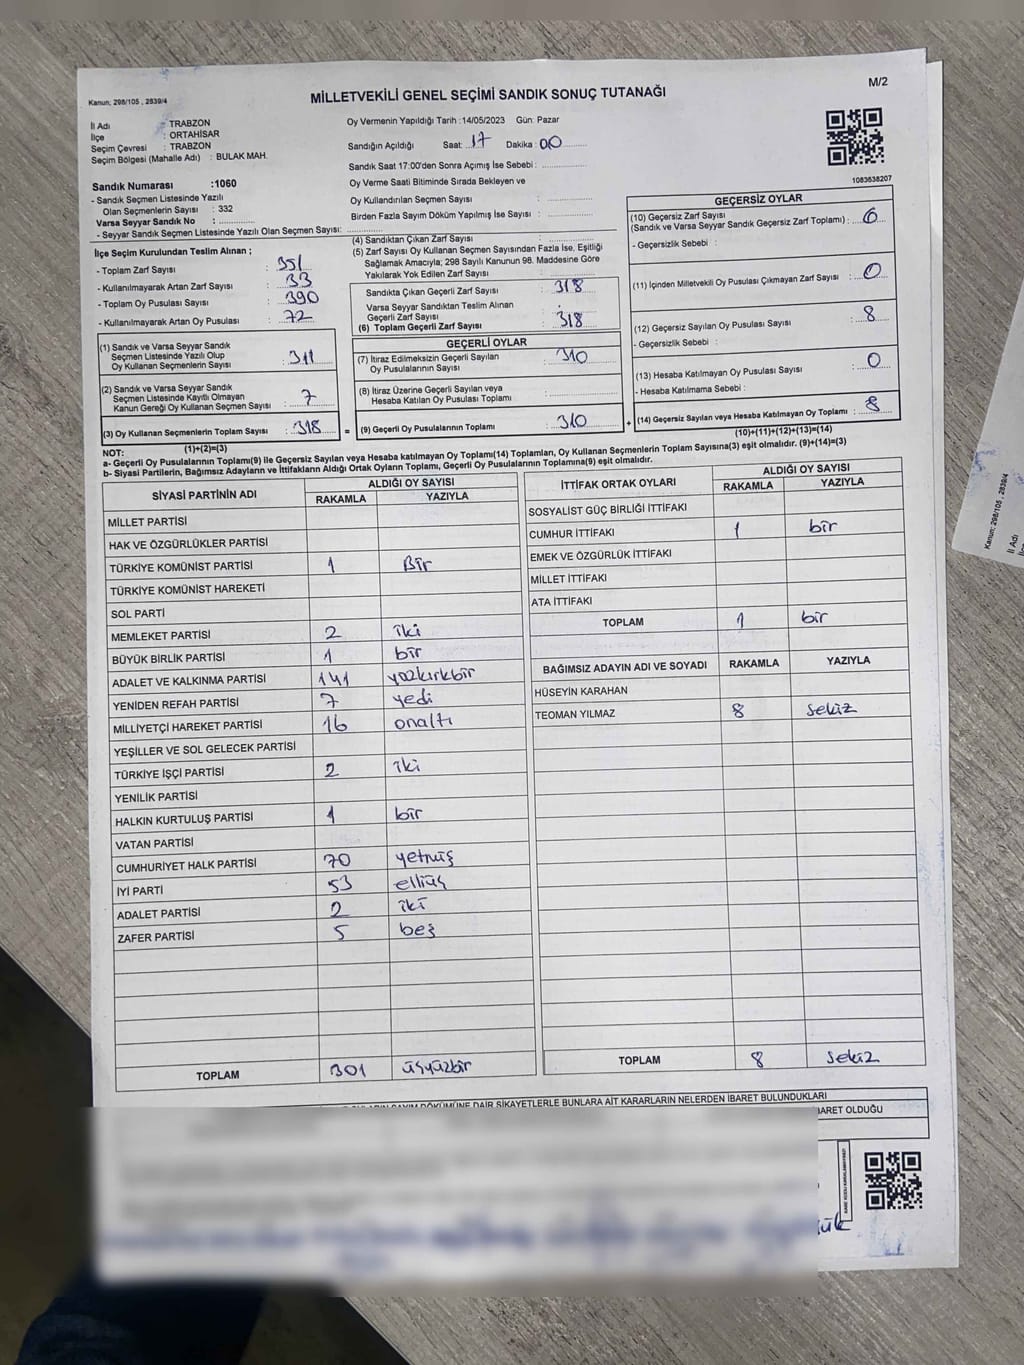 M/2
Kanun; 298/105 , 2839/4
MİLLETVEKİLİ GENEL SEÇİMİ SANDIK SONUÇ TUTANAĞI
İl Adı : TRABZON
İlçe : ORTAHİSAR
Seçim Çevresi : TRABZON
Seçim Bölgesi (Mahalle Adı) : BULAK MAH.
Oy Vermenin Yapıldığı Tarih :14/05/2023 Gün: Pazar
Sandığın Açıldığı Saat: 17 Dakika : 00
Sandık Saat 17:00'den Sonra Açımış İse Sebebi :
Oy Verme Saati Bitiminde Sırada Bekleyen ve
Oy Kullandırılan Seçmen Sayısı :
Birden Fazla Sayım Döküm Yapılmış İse Sayısı :
1083638207
Sandık Numarası :1060
- Sandık Seçmen Listesinde Yazılı
Olan Seçmenlerin Sayısı : 332
Varsa Seyyar Sandık No :
- Seyyar Sandık Seçmen Listesinde Yazılı Olan Seçmen Sayısı:
İlçe Seçim Kurulundan Teslim Alınan ;
- Toplam Zarf Sayısı : 351
- Kullanılmayarak Artan Zarf Sayısı : 33
- Toplam Oy Pusulası Sayısı : 390
- Kullanılmayarak Artan Oy Pusulası : 72
(1) Sandık ve Varsa Seyyar Sandık
Seçmen Listesinde Yazılı Olup
Oy Kullanan Seçmenlerin Sayısı : 311
(2) Sandık ve Varsa Seyyar Sandık
Seçmen Listesinde Kayıtlı Olmayan
Kanun Gereği Oy Kullanan Seçmen Sayısı : 7
(3) Oy Kullanan Seçmenlerin Toplam Sayısı : 318
(1)+(2)=(3)
(4) Sandıktan Çıkan Zarf Sayısı :
(5) Zarf Sayısı Oy Kullanan Seçmen Sayısından Fazla İse, Eşitliği
Sağlamak Amacıyla; 298 Sayılı Kanunun 98. Maddesine Göre
Yakılarak Yok Edilen Zarf Sayısı :
Sandıkta Çıkan Geçerli Zarf Sayısı : 318
Varsa Seyyar Sandıktan Teslim Alınan
Geçerli Zarf Sayısı :
(6) Toplam Geçerli Zarf Sayısı : 318
GEÇERLİ OYLAR
(7) İtiraz Edilmeksizin Geçerli Sayılan
Oy Pusulalarının Sayısı : 310
(8) İtiraz Üzerine Geçerli Sayılan veya
Hesaba Katılan Oy Pusulası Toplamı :
= (9) Geçerli Oy Pusulalarının Toplamı : 310
GEÇERSİZ OYLAR
(10) Geçersiz Zarf Sayısı
(Sandık ve Varsa Seyyar Sandık Geçersiz Zarf Toplamı) : 0
- Geçersizlik Sebebi :
(11) İçinden Milletvekili Oy Pusulası Çıkmayan Zarf Sayısı : 0
(12) Geçersiz Sayılan Oy Pusulası Sayısı : 8
- Geçersizlik Sebebi :
(13) Hesaba Katılmayan Oy Pusulası Sayısı : 0
- Hesaba Katılmama Sebebi :
+ (14) Geçersiz Sayılan veya Hesaba Katılmayan Oy Toplamı : 8
(10)+(11)+(12)+(13)=(14)
NOT:
a- Geçerli Oy Pusulalarının Toplamı(9) ile Geçersiz Sayılan veya Hesaba katılmayan Oy Toplamı(14) Toplamları, Oy Kullanan Seçmenlerin Toplam Sayısına(3) eşit olmalıdır. (9)+(14)=(3)
b- Siyasi Partilerin, Bağımsız Adayların ve İttifakların Aldığı Ortak Oyların Toplamı, Geçerli Oy Pusulalarının Toplamına(9) eşit olmalıdır.
SİYASİ PARTİNİN ADI ALDIĞI OY SAYISI
RAKAMLA YAZIYLA
MİLLET PARTİSİ
HAK VE ÖZGÜRLÜKLER PARTİSİ
TÜRKİYE KOMÜNİST PARTİSİ 1 Bir
TÜRKİYE KOMÜNİST HAREKETİ
SOL PARTİ
MEMLEKET PARTİSİ 2 iki
BÜYÜK BİRLİK PARTİSİ 1 bir
ADALET VE KALKINMA PARTİSİ 141 yüzkırkbir
YENİDEN REFAH PARTİSİ 7 yedi
MİLLİYETÇİ HAREKET PARTİSİ 16 onaltı
YEŞİLLER VE SOL GELECEK PARTİSİ
TÜRKİYE İŞÇİ PARTİSİ 2 iki
YENİLİK PARTİSİ
HALKIN KURTULUŞ PARTİSİ 1 bir
VATAN PARTİSİ
CUMHURİYET HALK PARTİSİ 70 yetmiş
İYİ PARTİ 53 elliüç
ADALET PARTİSİ 2 iki
ZAFER PARTİSİ 5 beş
TOPLAM 301 üçyüzbir
İTTİFAK ORTAK OYLARI ALDIĞI OY SAYISI
RAKAMLA YAZIYLA
SOSYALİST GÜÇ BİRLİĞİ İTTİFAKI
CUMHUR İTTİFAKI 1 bir
EMEK VE ÖZGÜRLÜK İTTİFAKI
MİLLET İTTİFAKI
ATA İTTİFAKI
TOPLAM 1 bir
BAĞIMSIZ ADAYIN ADI VE SOYADI RAKAMLA YAZIYLA
HÜSEYİN KARAHAN
TEOMAN YILMAZ 8 sekiz
TOPLAM 8 sekiz
SAYIM DÖKÜMÜNE DAİR ŞİKAYETLERLE BUNLARA AİT KARARLARIN NELERDEN İBARET BULUNDUKLARI
OLDUĞU
Kanun; 298/105 , 2839/4
İl Adı